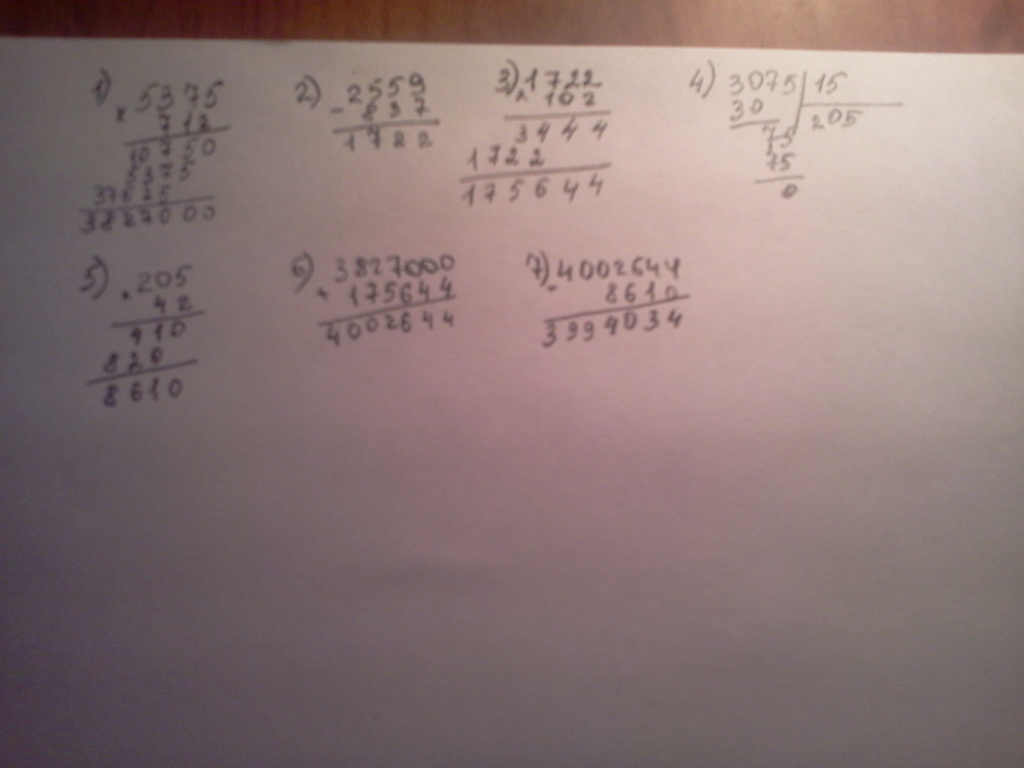 1) × 5375
712
10750
5375
37625
3827000
2) - 2559
837
1722
3) × 1722
102
3444
1722
175644
4) 3075 | 15
30
205
75
75
0
5) × 205
42
410
820
8610
6) + 3827000
175644
4002644
7) - 4002644
8610
3994034